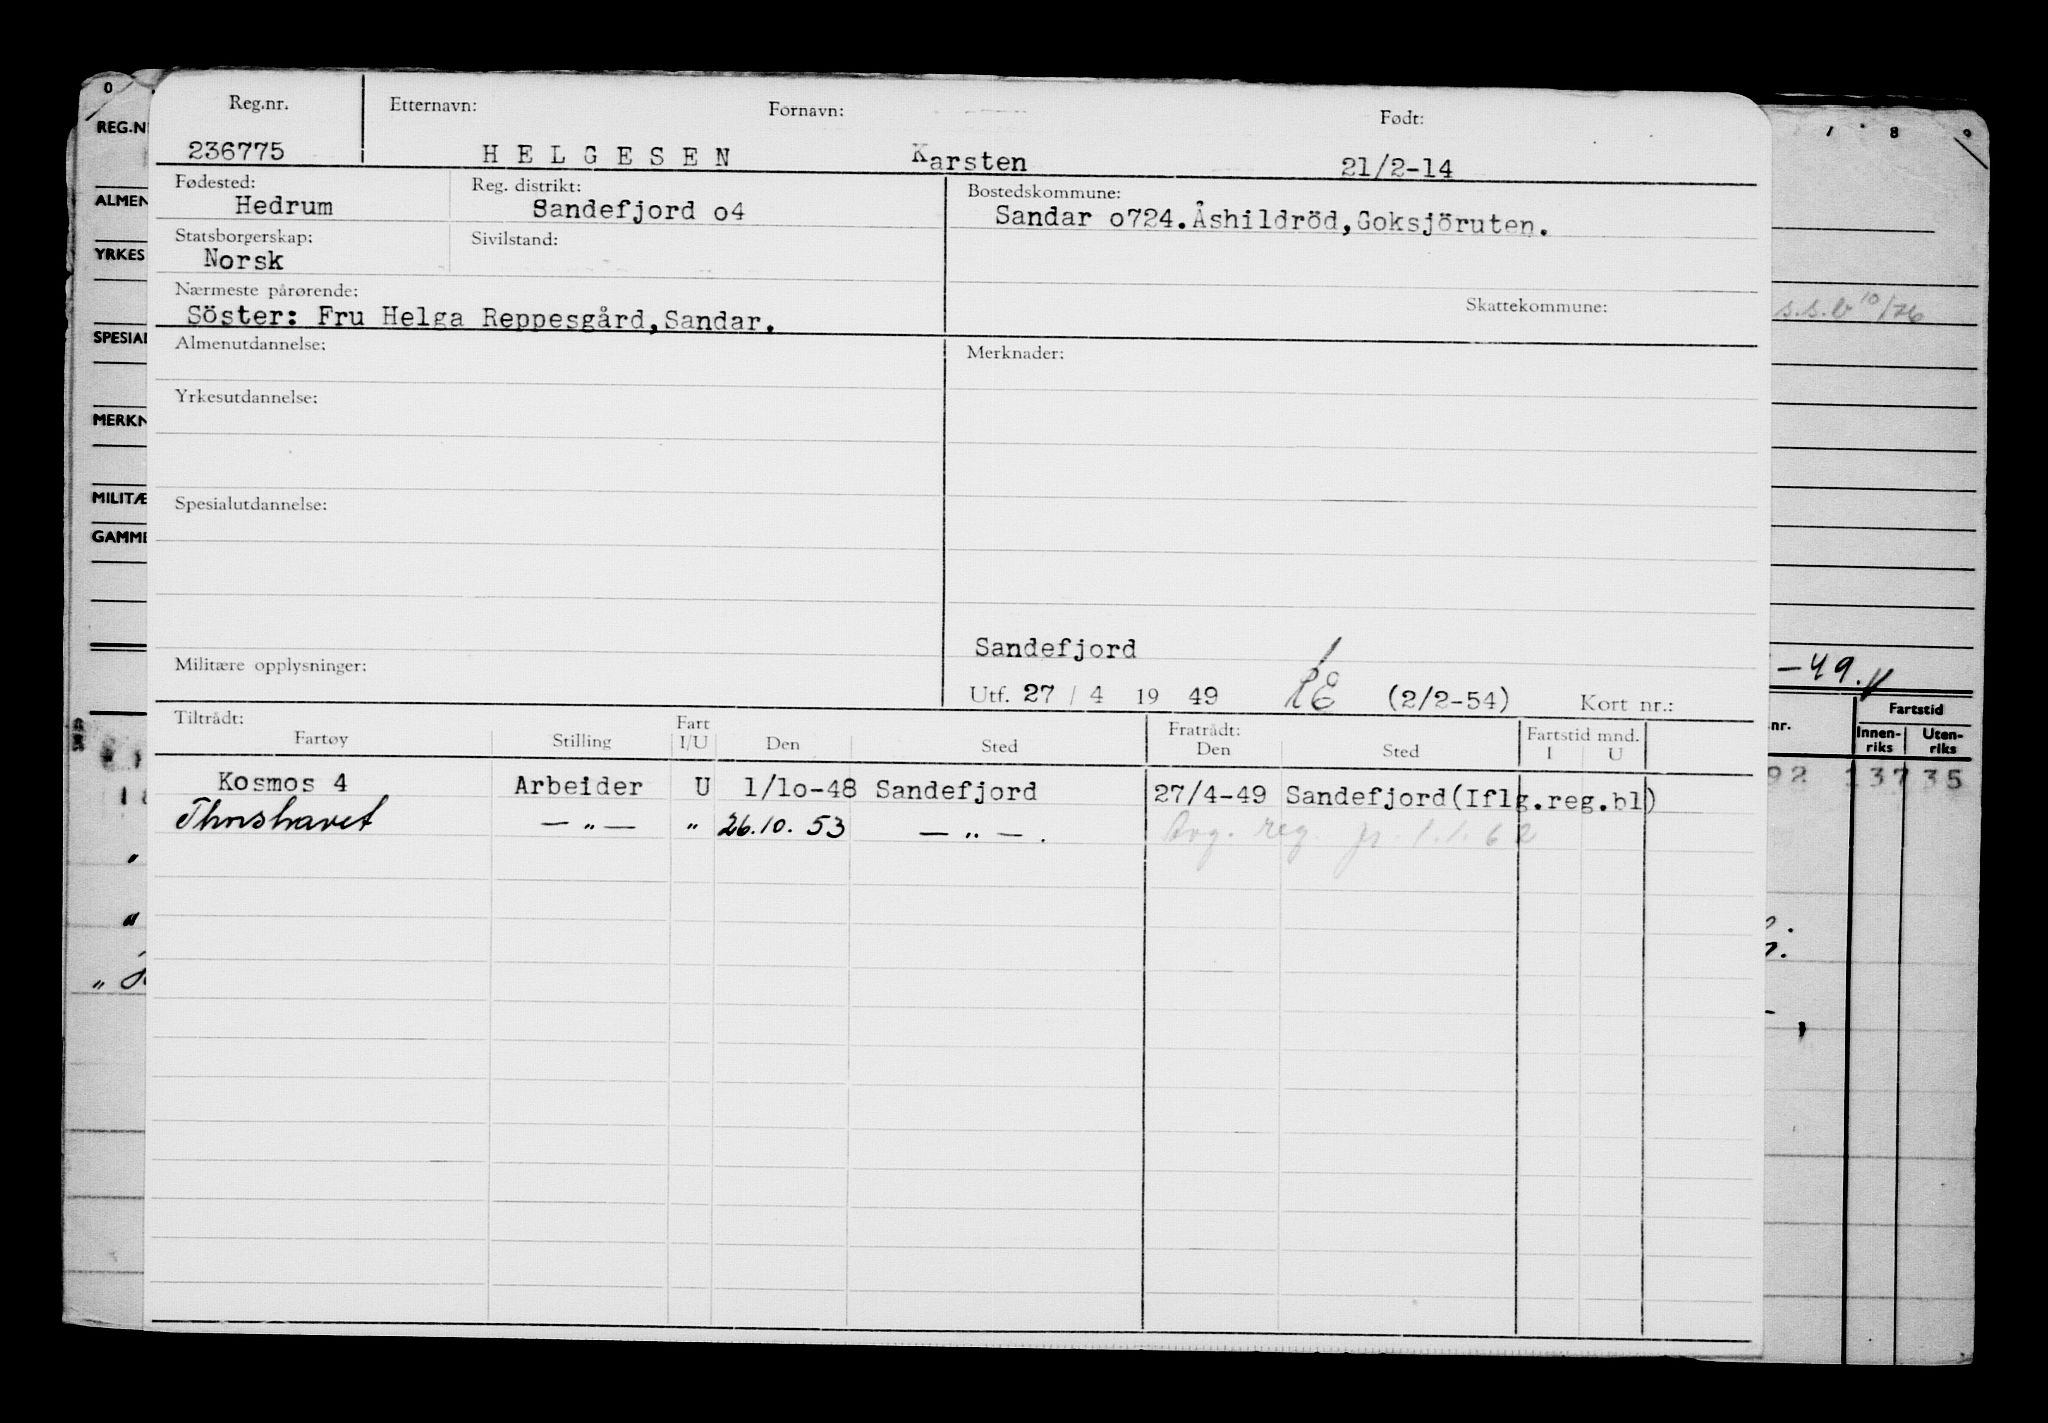 Reg.nr. Etternavn: Fornavn: Født:
236775 HELGESEN Karsten 21/2-14
Fødested: Reg. distrikt: Bostedskommune:
Hedrum Sandefjord o4 Sandar o724.Åshildröd,Goksjöruten.
Statsborgerskap: Sivilstand:
Norsk
Nærmeste pårørende: Skattekommune:
Söster: Fru Helga Reppesgård,Sandar.
Almenutdannelse: Merknader:
Yrkesutdannelse:
Spesialutdannelse:
Sandefjord
Militære opplysninger:
Utf. 27 / 4 19 49 RE (2/2-54) Kort nr.:
Tiltrådt: Fratrådt:
Fartøy Stilling Fart I/U Den Sted Den Sted Fartstid mnd. I U
Kosmos 4 Arbeider U 1/1o-48 Sandefjord 27/4-49 Sandefjord(Iflg.reg.bl)
Thorshavet — " — " 26.10.53 — " — .
Avg. reg. pr. 1.1.62
0
REG.N
ALMEN
YRKES
SPESIAL
MERKN
MILITÆ
GAMME
7 8 9
s.s.b 10/76
-49.
nr. Fartstid
Innen-riks Uten-riks
92 13735